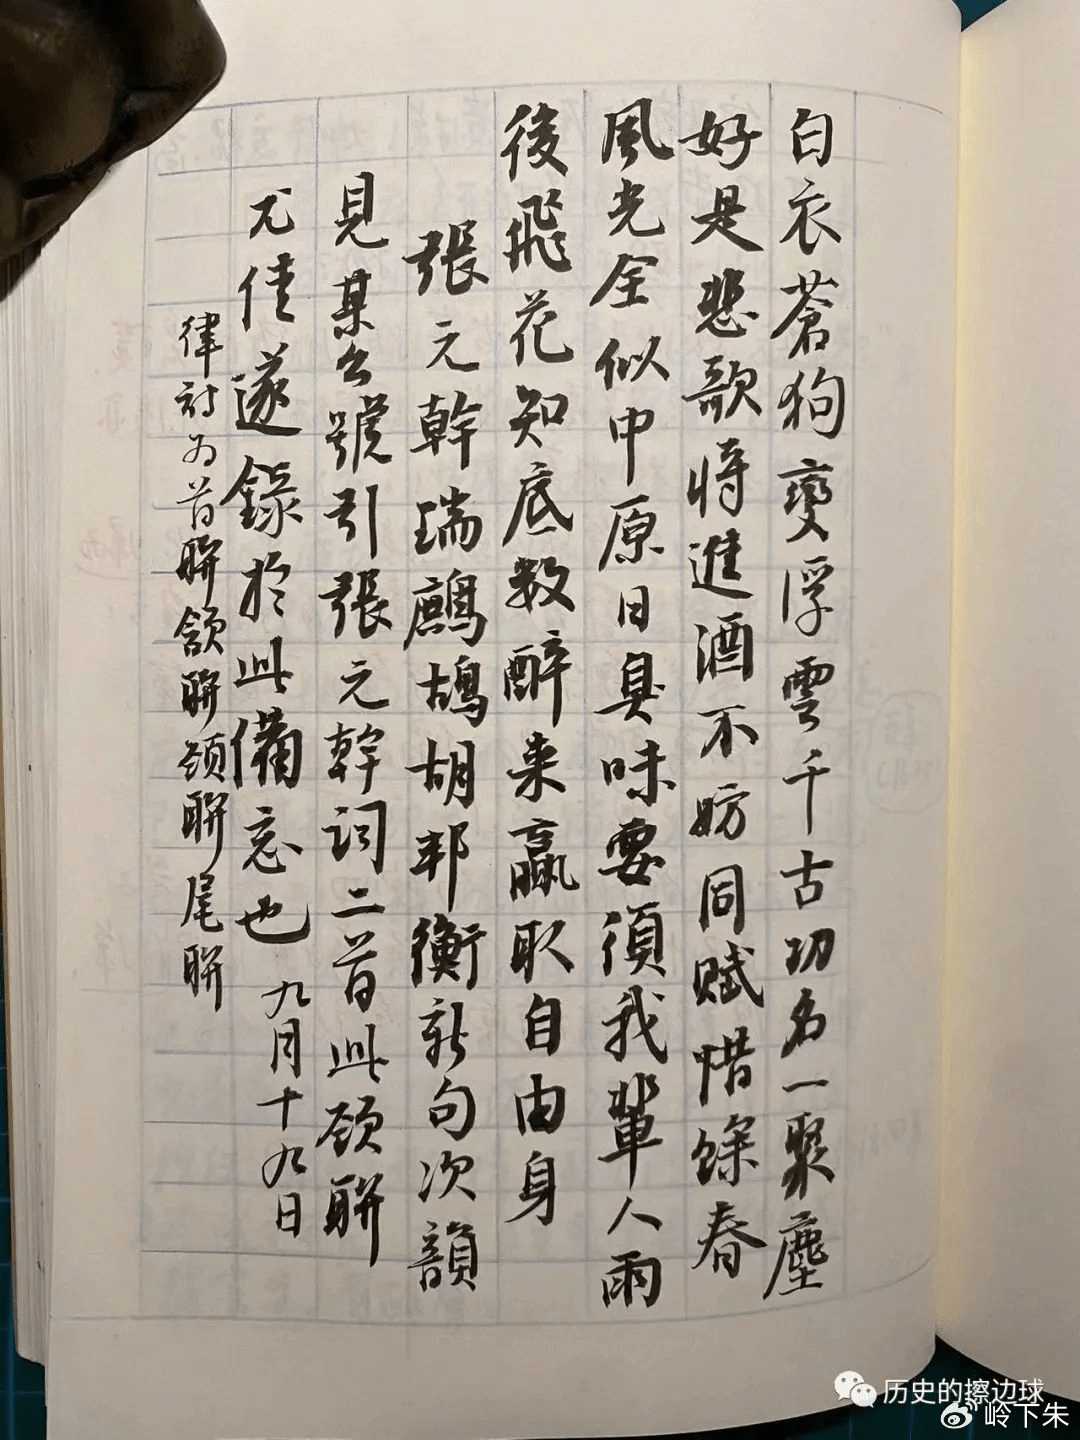 白衣蒼狗變浮雲千古功名一聚塵
好是悲歌將進酒不妨同賦惜餘春
風光全似中原日臭味要須我輩人雨
後飛花知底數醉來贏取自由身
張元幹瑞鷓鴣胡邦衡新句次韻
見某公號引張元幹詞二首此頷聯
尤佳遂錄於此備忘也 九月十九日
律詩为首聯頷聯頸聯尾聯
历史的擦边球
岭下朱